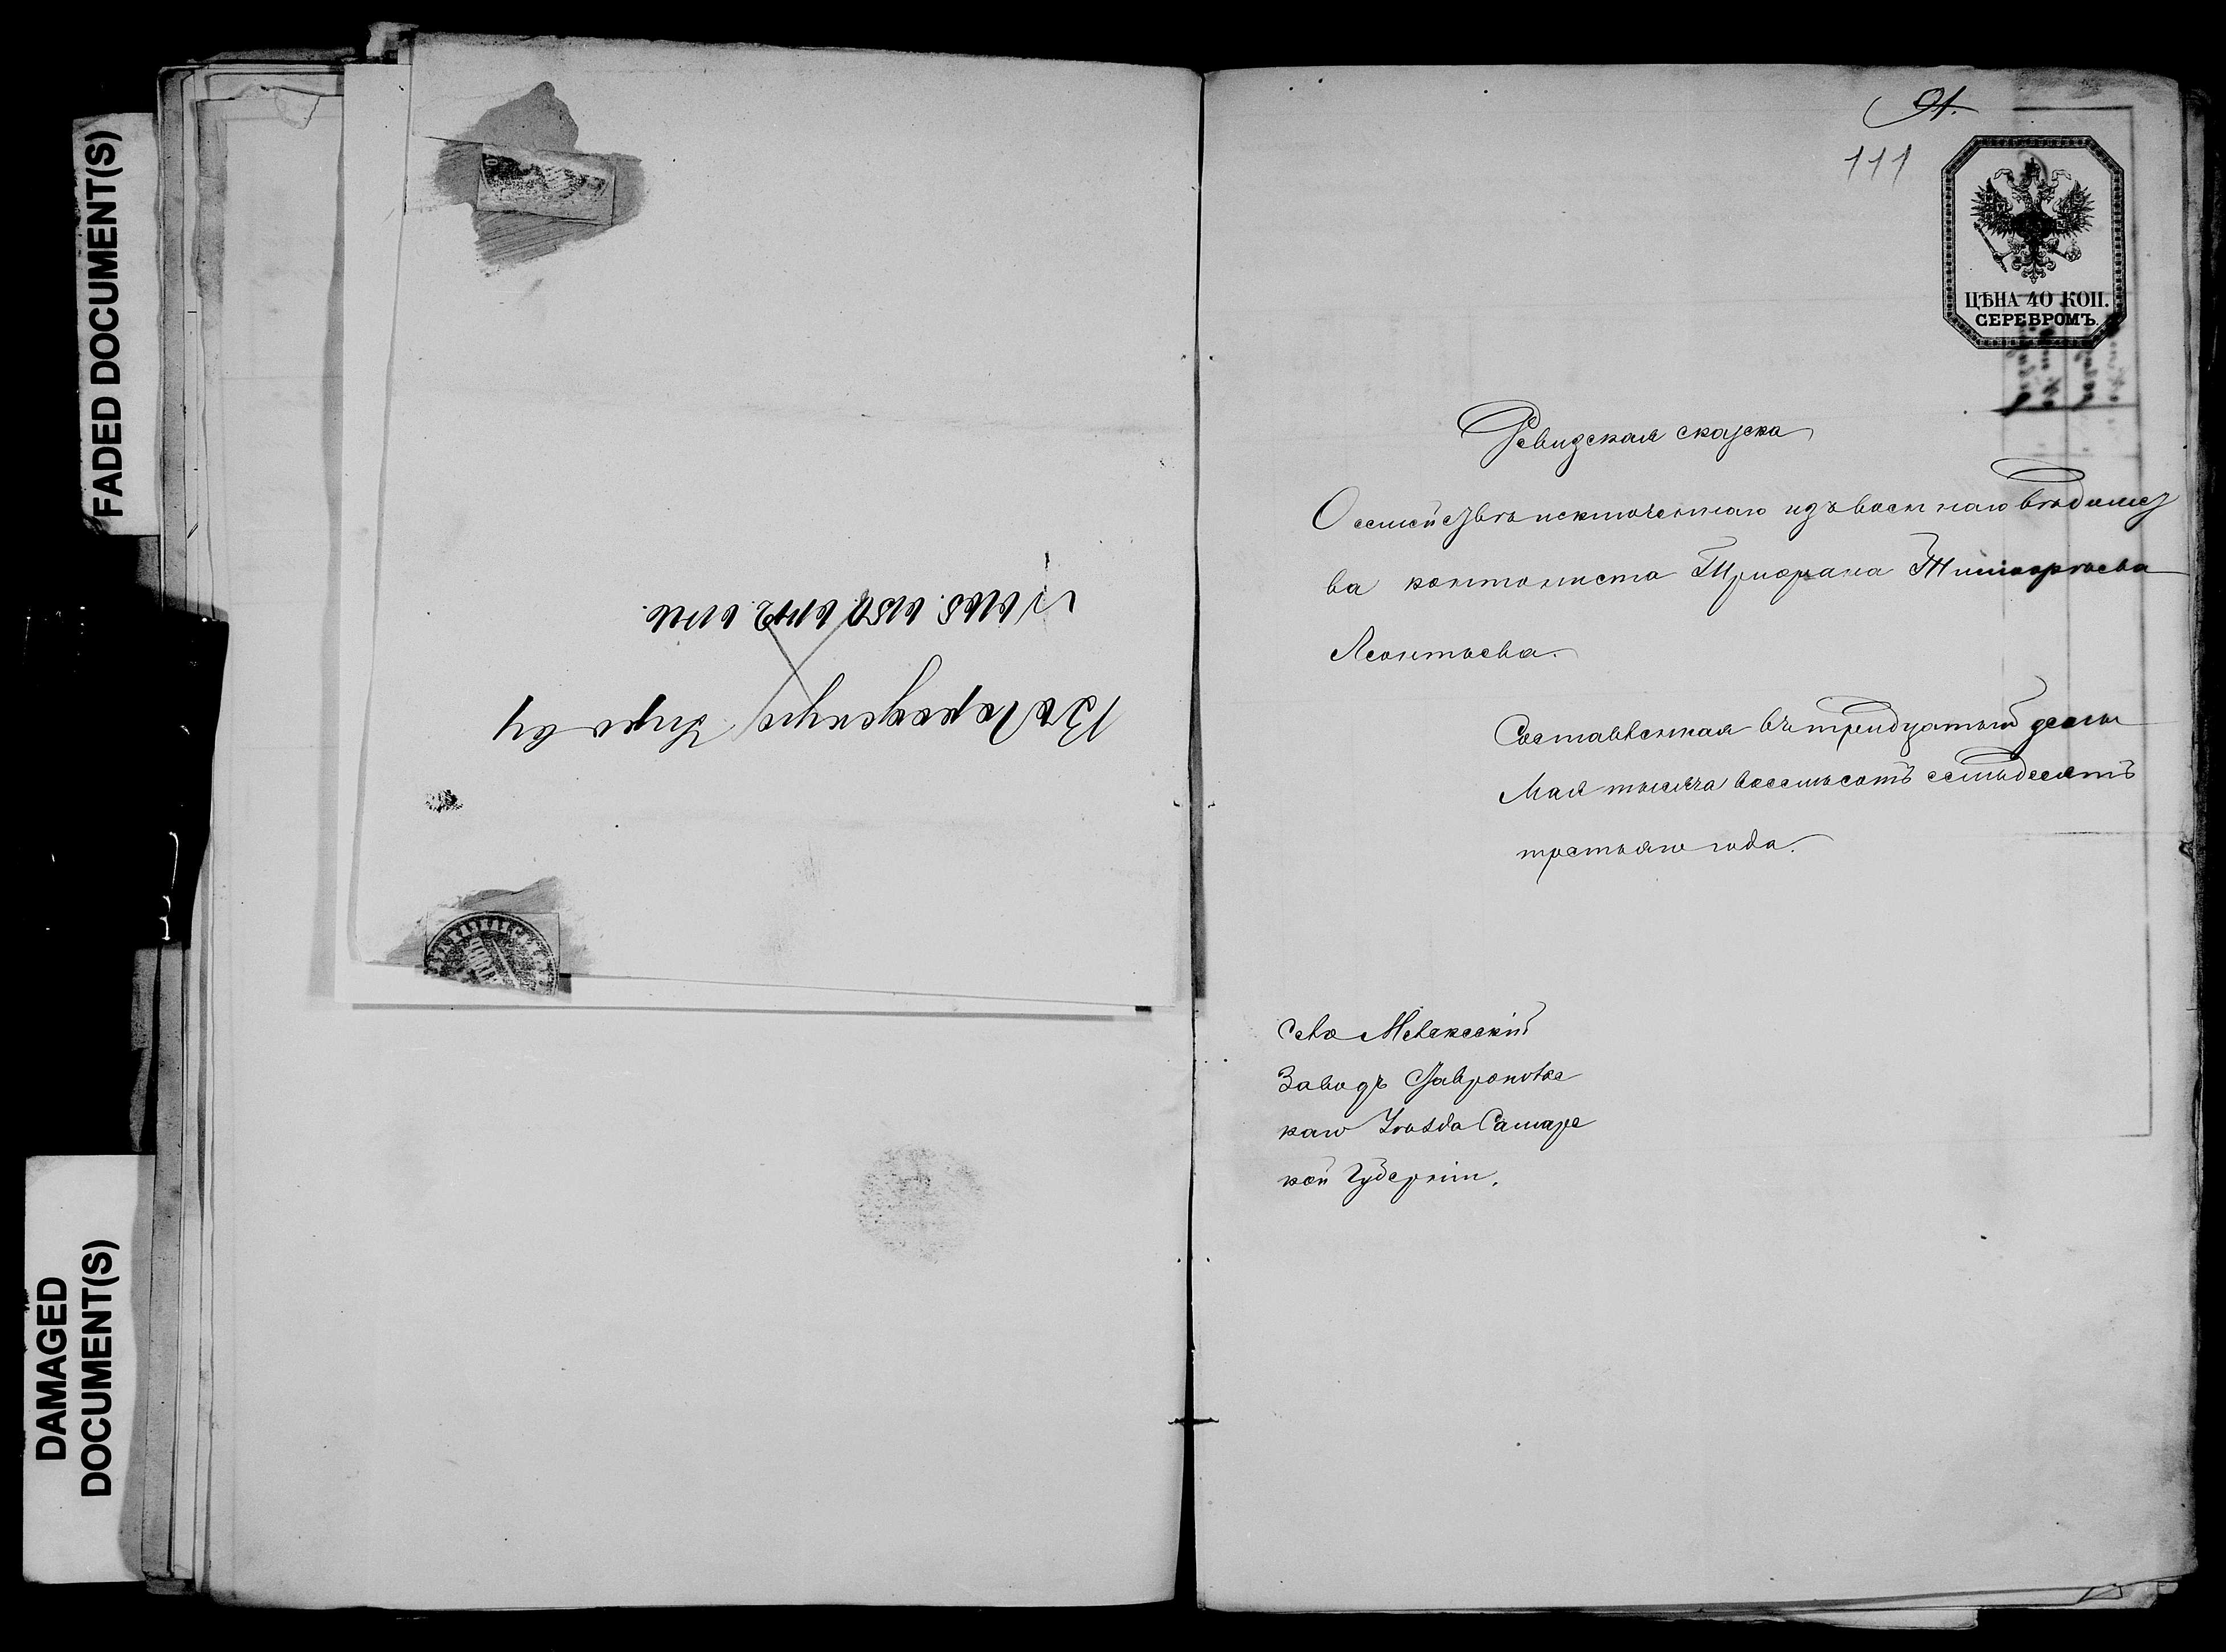 FADED DOCUMENT(S)
DAMAGED
DOCUMENT(S)
№ 6165. 6150. 6142. 6146.
91.
111
ЦѢНА 40 КОП.
СЕРЕБРОМЪ.
Ревизская сказка
О семействѣ исключеннаго изъ военнаго вѣдомст
ва кантониста Трифана
Леонтьева.
Составленная въ тридцатый день
Мая тысяча восемьсотъ семьдесятъ
третьяго года.
Село Мелекескій
Заводъ Ставропольс
каго Уѣзда Самарс
кой Губерніи.